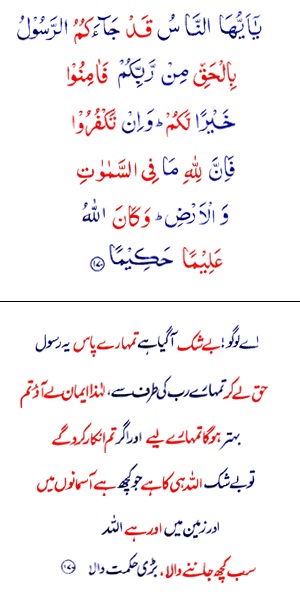 يٰۤاَيُّهَا النَّاسُ قَدْ جَآءَكُمُ الرَّسُوْلُ
بِالْحَقِّ مِنْ رَّبِّكُمْ فَاٰمِنُوْا
خَيْرًا لَّكُمْ ؕ وَاِنْ تَكْفُرُوْا
فَاِنَّ لِلّٰهِ مَا فِى السَّمٰوٰتِ
وَ الْاَرْضِ ؕ وَكَانَ اللّٰهُ
عَلِيْمًا حَكِيْمًا ۱۷۰
اے لوگو! بے شک آگیا ہے تمہارے پاس یہ رسول
حق لے کر تمہارے رب کی طرف سے، لہٰذا ایمان لے آؤ تم
بہتر ہوگا تمہارے لیے اور اگر تم انکار کرو گے
تو بے شک اللہ ہی کا ہے جو کچھ ہے آسمانوں میں
اور زمین میں اور ہے اللہ
سب کچھ جاننے والا، بڑی حکمت والا ۱۷۰